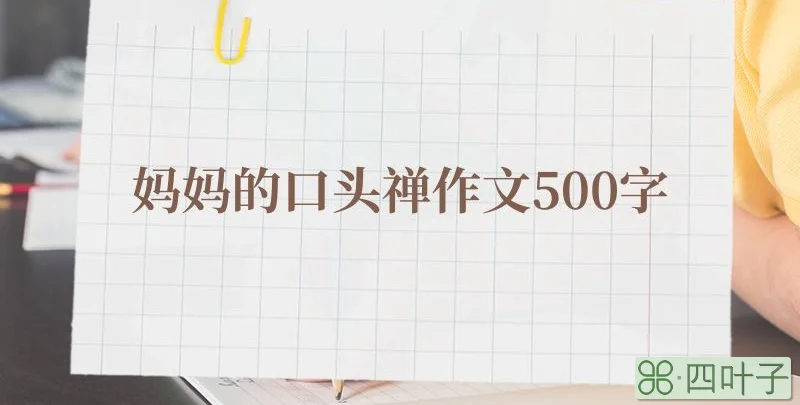 妈妈的口头禅作文500字
⌘·四叶子